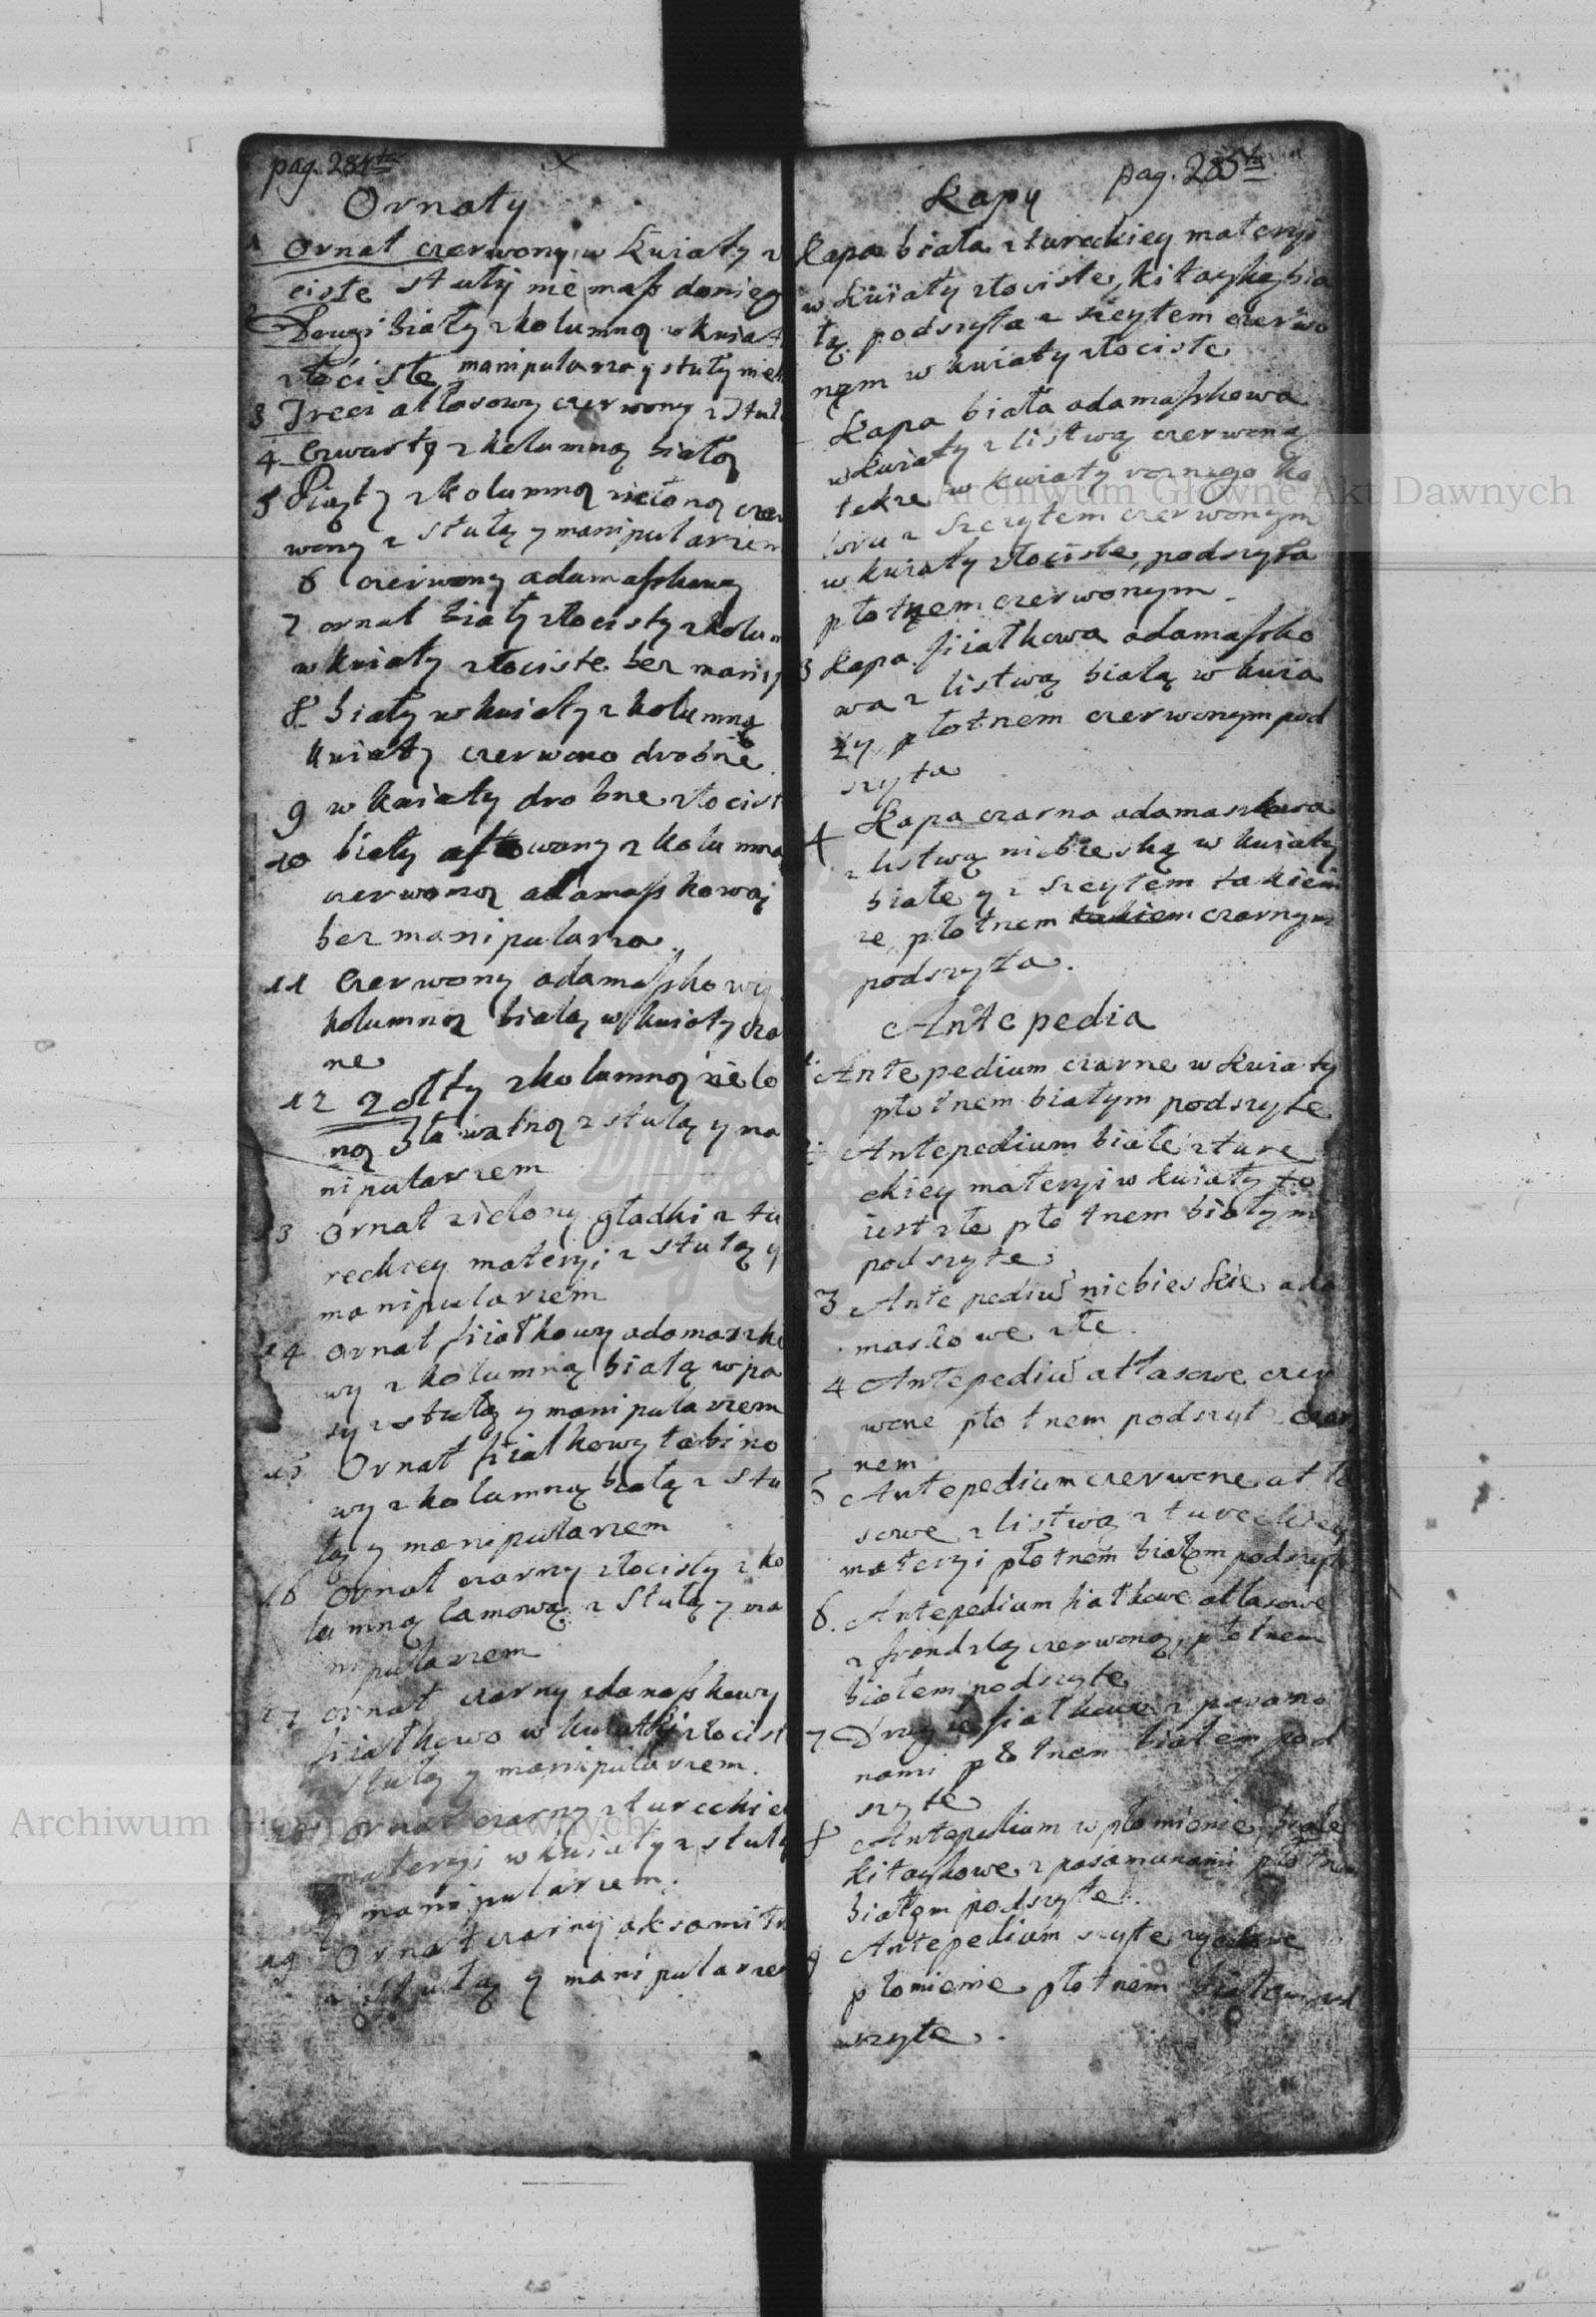 pag. 284ta
Ornaty
1 Ornat czerwony w kwiaty z
ciste stuły nie masz do nieg
2 Drugi biały z kolumną w kwiat
złociste manipularza y stuły nie
3 Trzeci atłasowy czerwony z stuł
4 Czwarty z kolumną białą
5 Piąty z kolumną zieloną czer
wony z stułą y manipularzem
6 czerwony adamaszkowy
7 ornat biały złocisty z kolum
w kwiaty złociste bez manip
8 biały w kwiaty z kolumną
kwiaty czerwono drobne
9 w kwiaty drobne złocist
10 biały z kolumną
czerwoną adamaszkową
bez manipularza
11 Czerwony adamaszkowy
kolumną białą w kwiaty cza
ne
12 Zółty z kolumną zielo
ną z stułą y ma
nipularzem
13 Ornat zielony gładki z tu
reckiey materyi z stułą y
manipularzem
14 Ornat fiiałkowy adamaszko
wy z kolumną białą w pa
sy z stułą y manipularzem
15 Ornat fiiałkowy tabino
wy z kolumną białą z stu
łą y manipularzem
16 Ornat czarny złocisty z ko
lumną lamową z stułą y ma
nipularzem
17 ornat czarny adamaszkowy
fiiałkowo w kwiatki złocist
stułą y manipularzem.
18 Ornat czarny z tureckie
materyi w kwiaty z stułą
y manipularzem.
19 Ornat czarny aksamitn
z stułą y manipularzem
pag. 285ta
Kapy
Kapa biała z tureckiey materyi
w kwiaty złociste, kitayką bia
łą podszyta z szczytem czerwo
nym w kwiaty złociste
Kapa biała adamaszkowa
w kwiaty z listwą czerwoną
także w kwiaty roznego ko
loru z szczytem czerwonym
w kwiaty złociste, podszyta
płotnem czerwonym.
3 Kapa fiiałkowa adamaszko
wa z listwą białą w kwia
ty płotnem czerwonym pod
szyta
4 Kapa czarna adamaszkowa
z listwą niebieską w kwiaty
białe y z szczytem takiem
ze płotnem takiem czarnym
podszyta.
Antepedia
1. Antepedium czarne w kwiaty
płotnem białym podszyte
2. Antepedium białe z ture
ckiey materyi w kwiaty to
iest złe płotnem białym
podszyte
3 Antepediu niebieskie ada
maskowe złe.
4 Antepediu atłasowe czer
wone płotnem podszyte czar
nem
5 Antepedium czerwone atła
sowe z listwą z tureckiey
materyi płotnem białem podszyte
6. Antepedium fiałkowe atłasowe
z frandzlą czerwoną, płotnem
białem podszyte
7 Drugie fiałkowe z pasama
nami płotnem białem pod
szyte
8 Antepedium w płomienie, białe
kitaykowe z pasamanami płotnem
białym podszyte.
9 Antepedium szyte
płomienie płotnem białem pod
szyte.
Archiwum Główne Akt Dawnych
Archiwum Główne Akt Dawnych